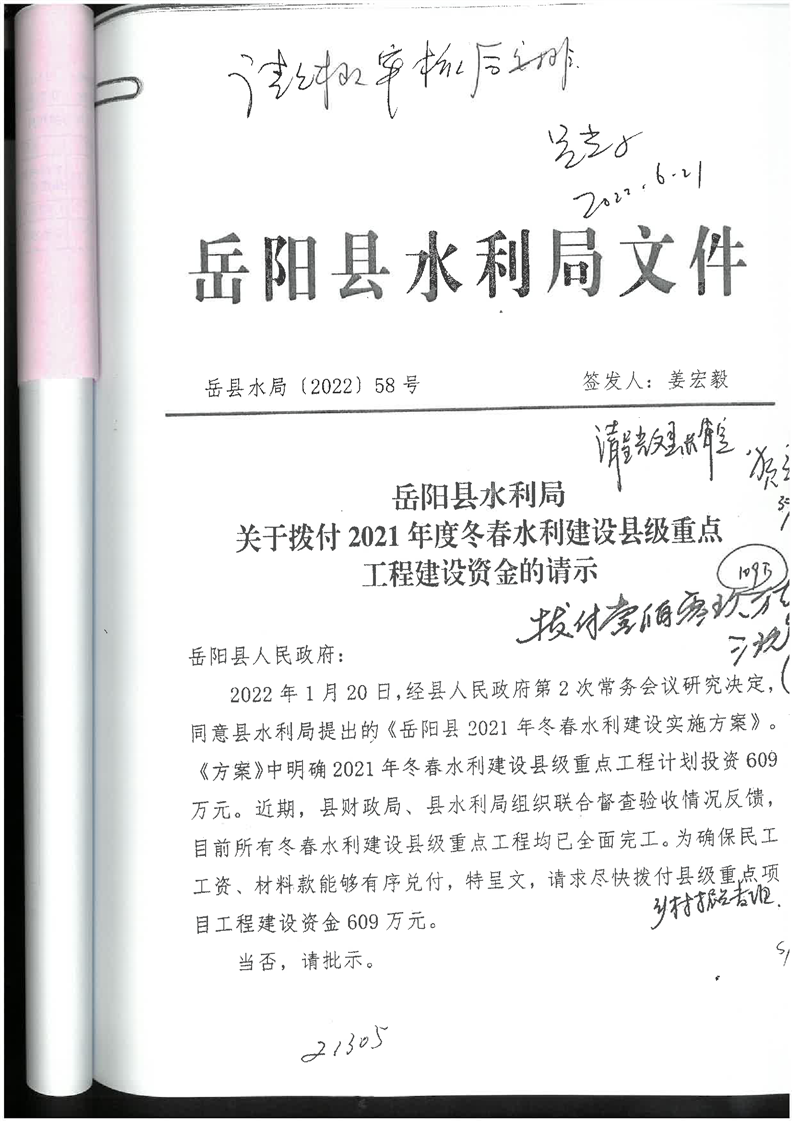 2022.6.21
岳阳县水利局文件
岳县水局〔2022〕58号
签发人：姜宏毅
岳阳县水利局
关于拨付2021年度冬春水利建设县级重点
工程建设资金的请示
109万
拨付壹佰零玖万元
岳阳县人民政府：
2022年1月20日,经县人民政府第2次常务会议研究决定,
同意县水利局提出的《岳阳县2021年冬春水利建设实施方案》。
《方案》中明确2021年冬春水利建设县级重点工程计划投资609
万元。近期，县财政局、县水利局组织联合督查验收情况反馈，
目前所有冬春水利建设县级重点工程均已全面完工。为确保民工
工资、材料款能够有序兑付，特呈文，请求尽快拨付县级重点项
目工程建设资金609万元。
当否，请批示。
21305